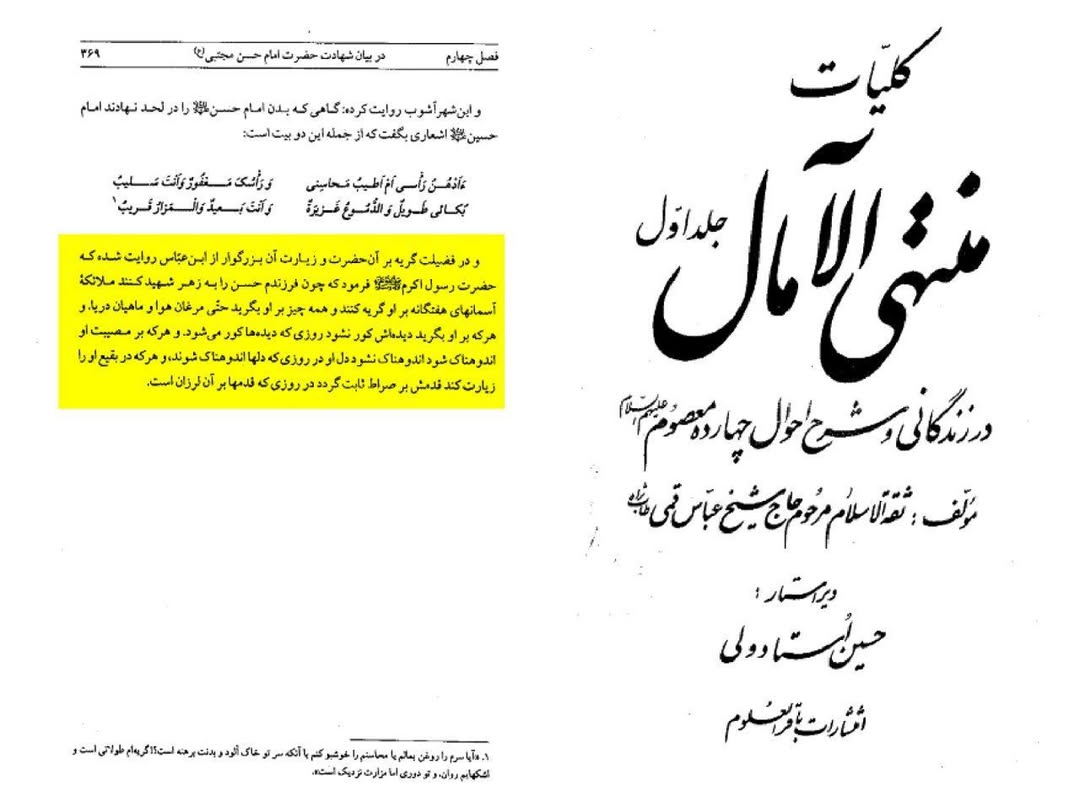 کلیّات
منتهی الآمال
جلد اوّل
در زندگانی و شرح احوال چهارده معصوم علیهم السلام
مؤلّف : ثقة الاسلام مرحوم حاج شیخ عباس قمی طاب ثراه
ویراستار :
حسین اُستاد ولی
انتشارات باقرالعلوم
فصل چهارم در بیان شهادت حضرت امام حسن مجتبی(ع) ۳۶۹
و ابن‌شهرآشوب روایت کرده: گاهی که بدن امام حسن علیه السلام را در لحد نهادند امام
حسین علیه السلام اشعاری بگفت که از جمله این دو بیت است:
ءَاَدْهُنُ رَأْسی اَمْ اَطیبُ مَحاسِنی وَ رَأْسُکَ مَعْفُورٌ وَاَنْتَ سَلیبُ
بُکائی طَویلٌ وَ الدُّمُوعُ غَزیرَةٌ وَ اَنْتَ بَعیدٌ وَالْمَزارُ قَریبُ۱
و در فضیلت گریه بر آن‌حضرت و زیارت آن بزرگوار از ابن‌عبّاس روایت شده که
حضرت رسول اکرم ﷺ فرمود که چون فرزندم حسن را به زهر شهید کنند ملائکهٔ
آسمانهای هفتگانه بر او گریه کنند و همه چیز بر او بگرید حتّی مرغان هوا و ماهیان دریا. و
هرکه بر او بگرید دیده‌اش کور نشود روزی که دیده‌ها کور می‌شود. و هرکه بر مصیبت او
اندوهناک شود اندوهناک نشود دل او در روزی که دلها اندوهناک شوند، و هرکه در بقیع او را
زیارت کند قدمش بر صراط ثابت گردد در روزی که قدمها بر آن لرزان است.
۱. «آیا سرم را روغن بمالم یا محاسنم را خوشبو کنم با آنکه سر تو خاک آلود و بدنت برهنه است؟! گریه‌ام طولانی است و
اشکهایم روان، و تو دوری اما مزارت نزدیک است».